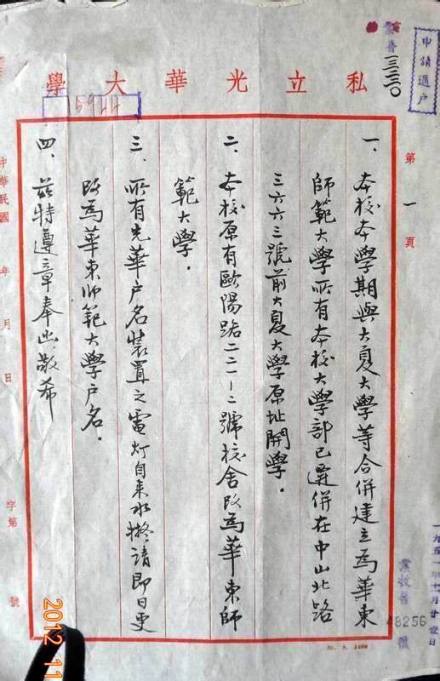 私立光華大學
申請過户
一三三〇
5922
第一頁
一、本校本學期與大夏大學等合併建立為華東
師範大學所有本校大學部已遷併在中山北路
三六六三號前大夏大學原址開學．
二、本校原有歐陽路二二一-二號校舍改為華東師
範大學．
三、所有光華户名裝置之電灯自来水擬請即日更
改為華東师範大學户名．
四、茲特遵章奉函敬希
中華民國 年 月 日
字第 號
業收普 48256 號
2012 11